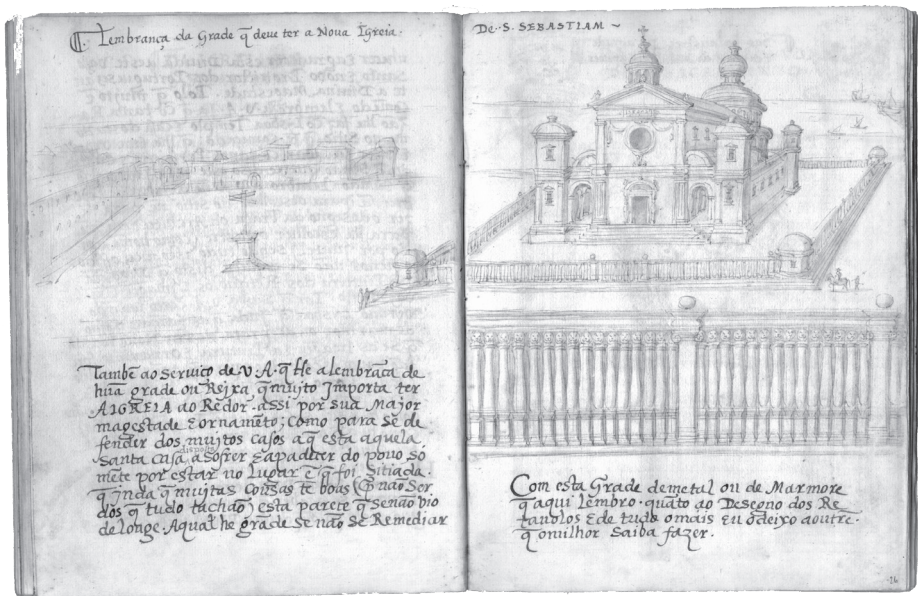 Lembrança da Grade q̃ deue ter a Nova Igreia.
Tambẽ ao seruiço de V·A·q̃ He a lembrãça de
hũa grade ou Rejxa, q̃ mujto Jmporta ter
AIGREIA ao Redor·assi por sua Major
magestade E ornamẽto; Como para se de
fender dos mujtos casos a q̃ esta aquela
Santa casa disposta a sofrer E a padecer do pouo só
mẽte por estar no Lugar ẽ q̃ foi sitiada.
q̃ jnda q̃ mujtas Cousas tẽ boas (E não Ser
dos q̃ tudo tachão) esta parece q̃ Senão vio
de Longe. A qual he grade se não se Remediar
DE·S·SEBASTIAM~
Com esta Grade de metal ou de Marmore
q̃ aqui Lembro·quãto ao Desegno dos Re
tauolos E de tudo o mais Eu o deixo a outrẽ·
q̃ o milhor Saiba fazer.
26